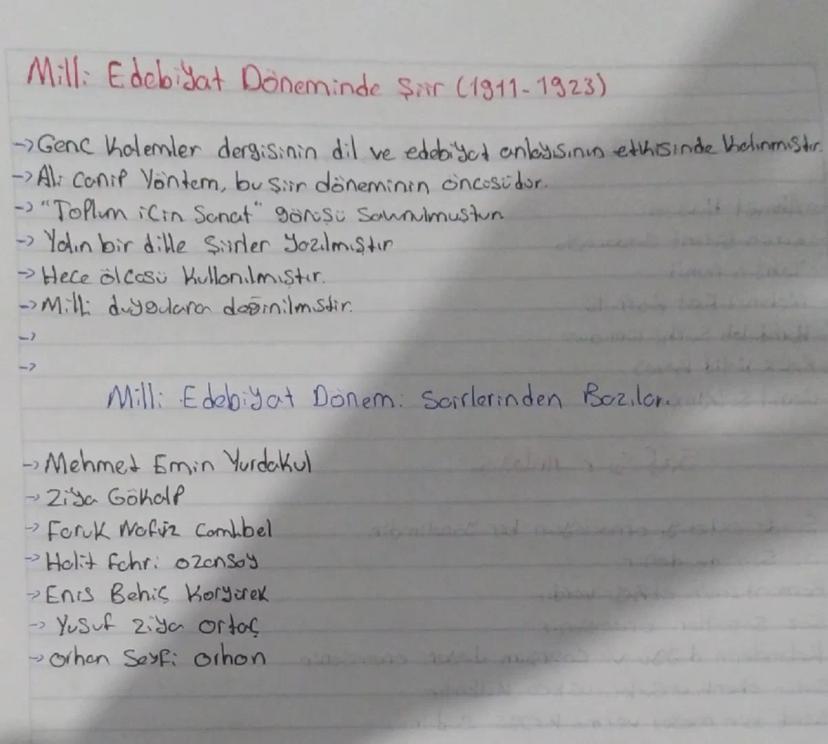 Milli Edebiyat Döneminde Şiir (1911-1923)
→ Genç Kalemler dergisinin dil ve edebiyat anlayışının etkisinde kalınmıştır.
→ Ali Canip Yöntem, bu şiir döneminin öncüsüdür.
→ "Toplum için Sanat" görüşü savunulmuştur
→ Yalın bir dille şiirler yazılmıştır
→ Hece ölçüsü kullanılmıştır.
→ Milli duygulara değinilmiştir.
→
→
Milli Edebiyat Dönemi Şairlerinden Bazıları
→ Mehmet Emin Yurdakul
→ Ziya Gökalp
→ Faruk Nafiz Çamlıbel
→ Halit Fahri Ozansoy
→ Enis Behiç Koryürek
→ Yusuf Ziya Ortaç
→ Orhan Seyfi Orhon